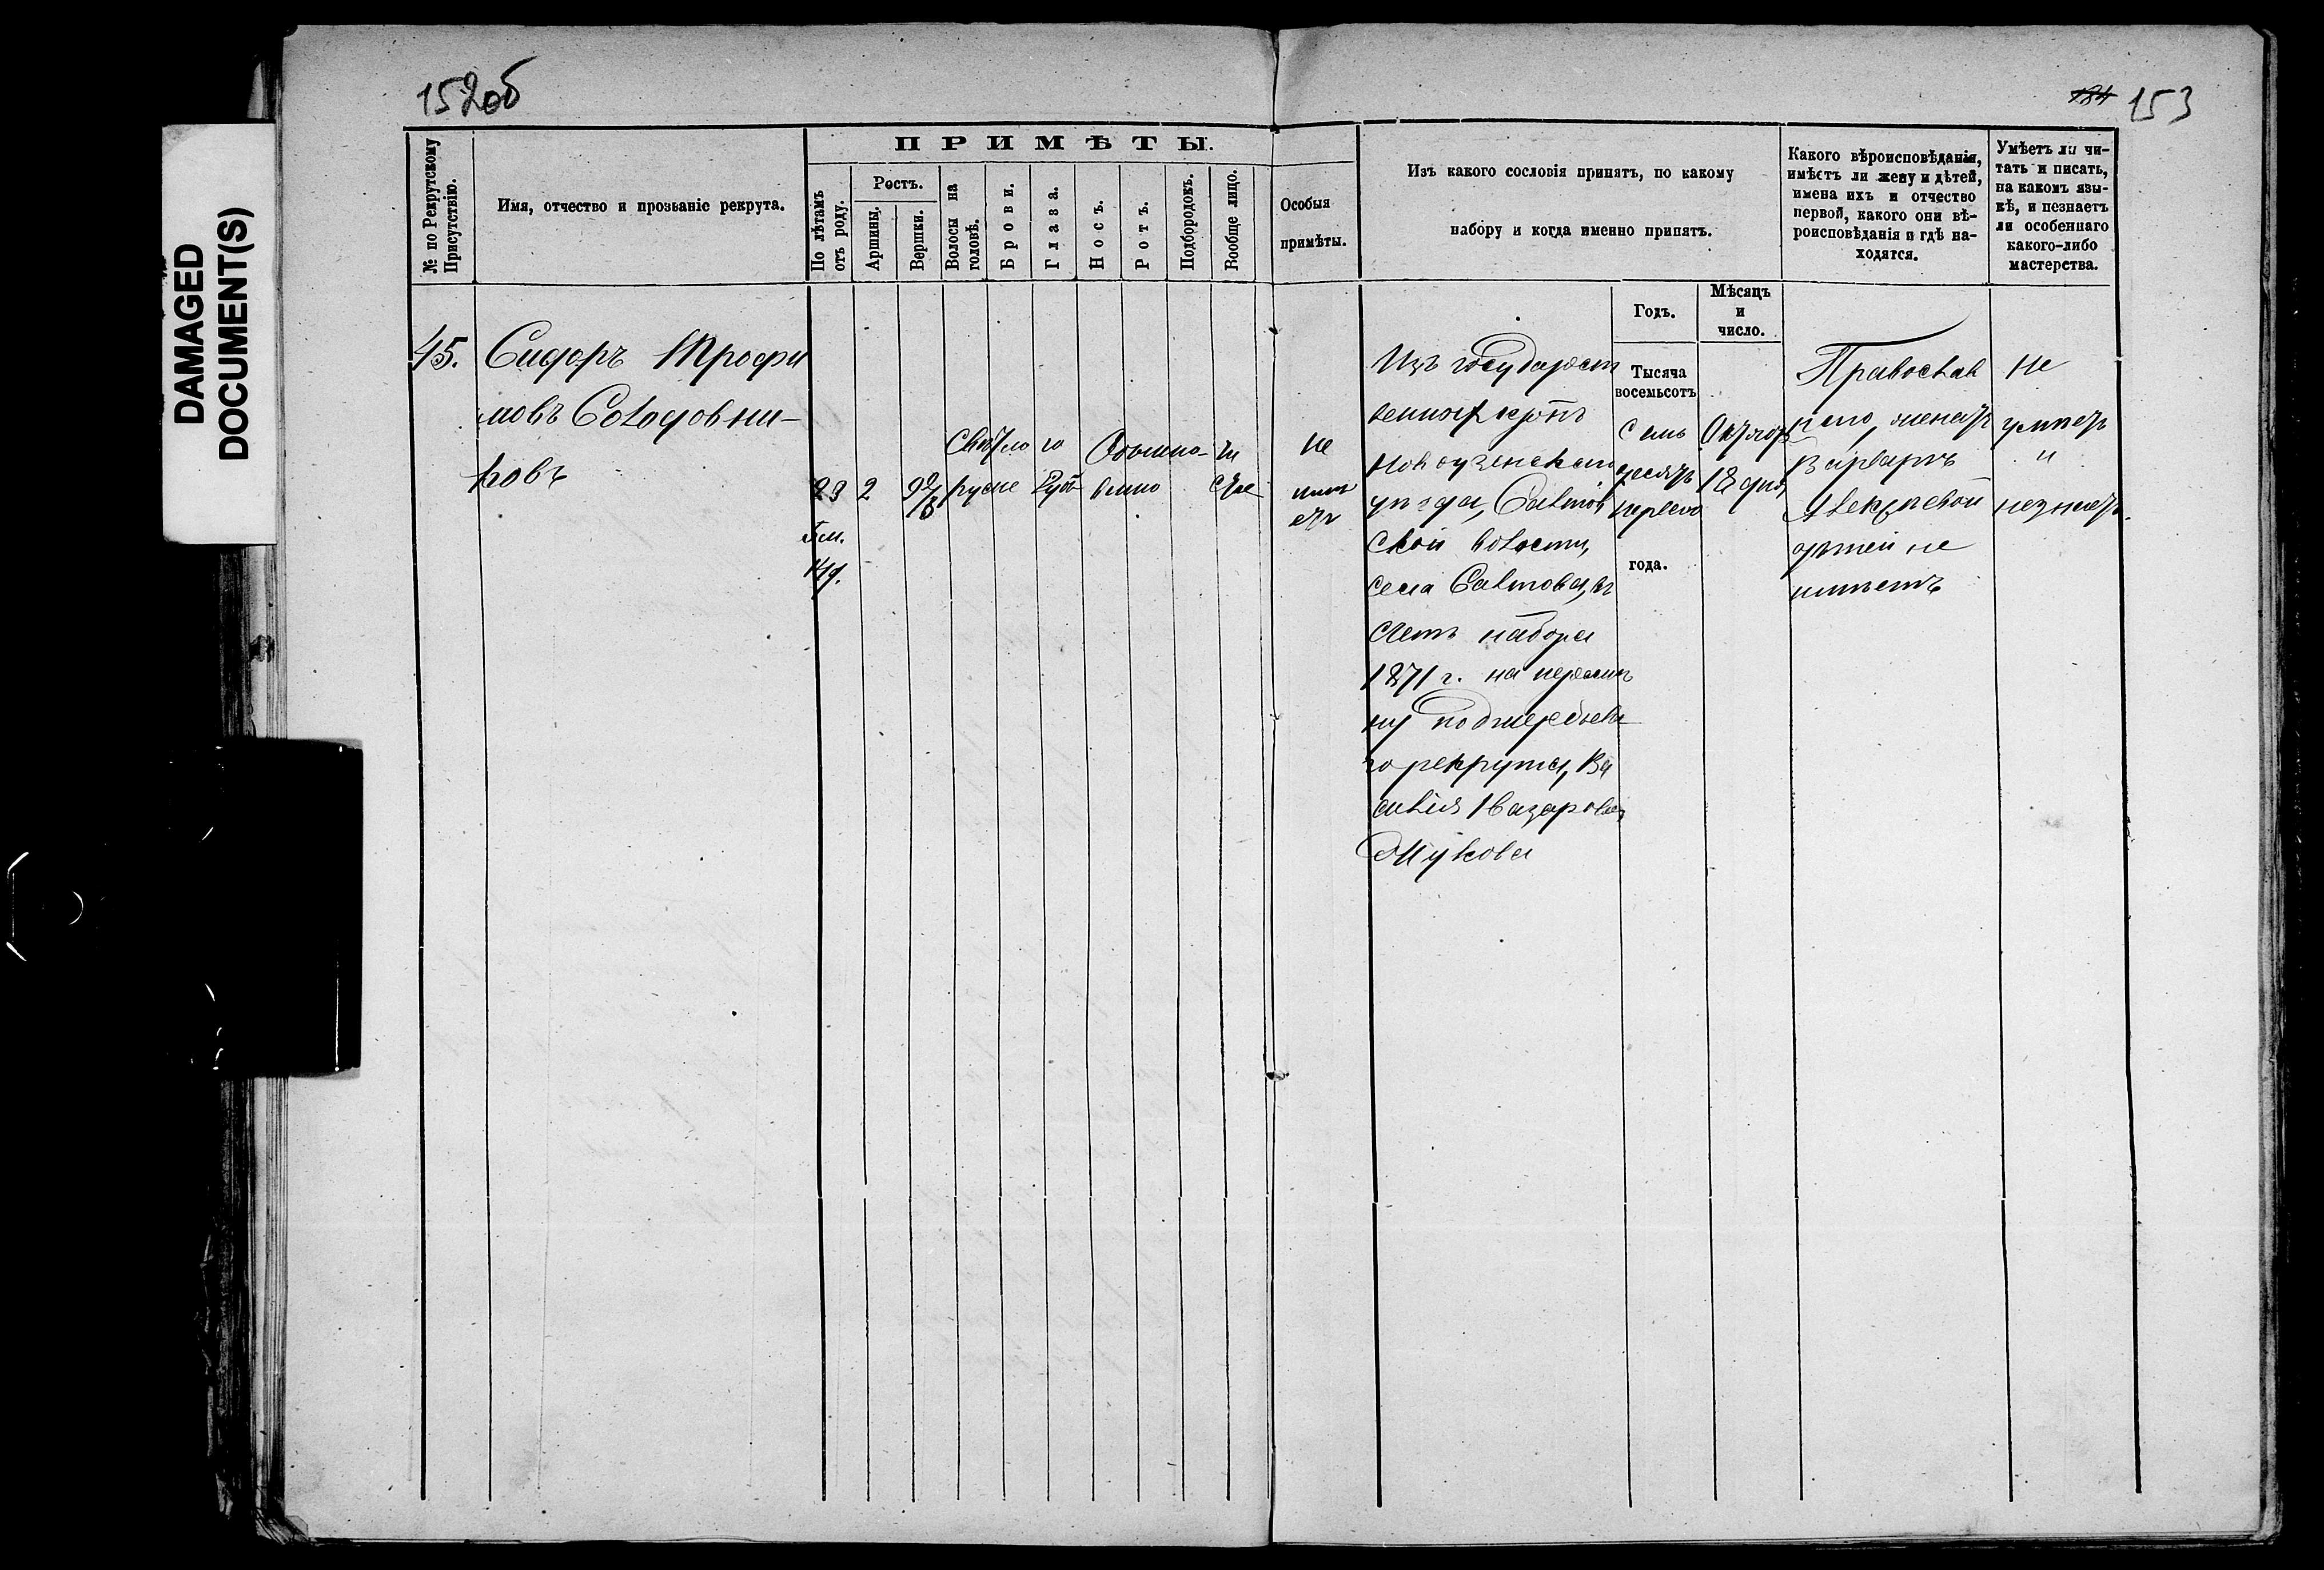 DAMAGED
DOCUMENT(S)
152об
184 153
№ по Рекрутскому
Присутствію.
Имя, отчество и прозваніе рекрута.
ПРИМѢТЫ.
По лѣтамъ
отъ роду.
Ростъ.
Аршины.
Вершки.
Волосы на
головѣ.
Брови.
Глаза.
Носъ.
Ротъ.
Подбородокъ.
Вообще лицо.
Особыя
примѣты.
Изъ какого сословія принятъ, по какому
набору и когда именно принятъ.
Какого вѣроисповѣданія,
имѣетъ ли жену и дѣтей,
имена ихъ и отчество
первой, какого они вѣ-
роисповѣданія и гдѣ на-
ходятся.
Умѣетъ ли чи-
тать и писать,
на какомъ язы-
кѣ, и незнаетъ
ли особеннаго
какого-либо
мастерства.
Годъ.
Мѣсяцъ
и
число.
45.
Сидоръ Трофи
мовъ Солодовни-
ковъ
23
5 м.
14 д.
2
9 2/8
Свѣтло
русые
го
луб
Обыкно-
венно
чи
стое
не
имѣ
етъ
Изъ государст
венныхъ крѣнъ
Новоузенскаго
уѣзда, Салтов
ской волости,
села Салтова, въ
счетъ набора
1871 г. на перемѣ
ну подмередьева
го рекрута, Ва
силія Назарова
Жукова
Тысяча
восемьсотъ
Семь
десятъ
перваго
года.
Октябр
18 дня,
Православ
наго, женатъ
Варварѣ
Алексѣевой
дѣтей не
имѣетъ
Не
умѣетъ
и
незнаетъ.